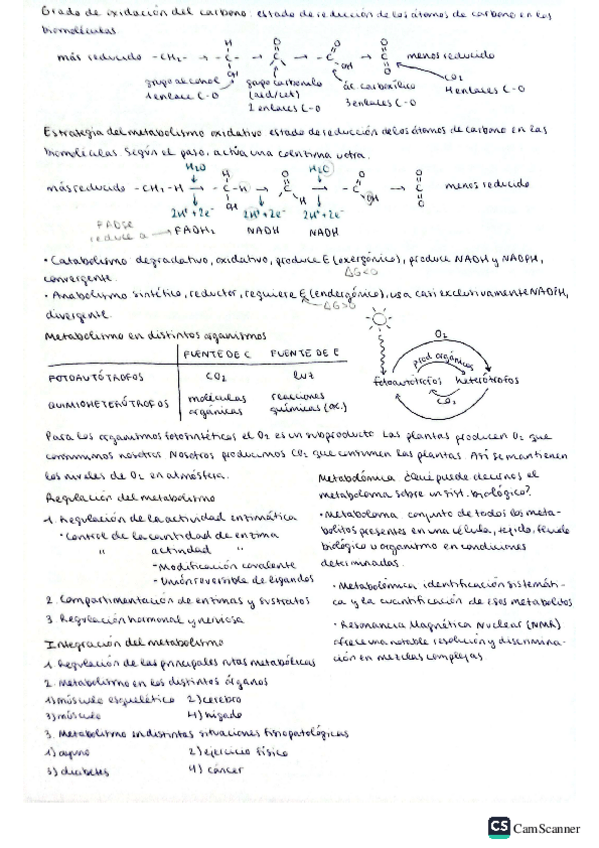 Grado de oxidación del carbono: estado de reducción de los átomos de carbono en las
biomoléculas
más reducido -CH2- → -C- → C → -C → C menos reducido
H O O O
OH OH O
grupo alcohol grupo carbonilo ác. carboxílico CO2
1 enlace C-O (ald/cet) 3 enlaces C-O 4 enlaces C-O
2 enlaces C-O
Estrategia del metabolismo oxidativo estado de reducción de los átomos de carbono en las
biomoléculas. Según el paso, actúa una coenzima u otra.
H2O H2O
más reducido -CH2-H → -C-H → C → -C → C menos reducido
H O O O
OH H OH O
2H+ + 2e- 2H+ + 2e- 2H+ + 2e-
FAD se
reduce a → FADH2 NADH NADH
· Catabolismo degradativo, oxidativo, produce E (exergónico), produce NADH y NADPH,
convergente. ΔG<0
· Anabolismo sintético, reductor, requiere E (endergónico), usa casi exclusivamente NADPH,
divergente. ΔG>0
Metabolismo en distintos organismos
FUENTE DE C FUENTE DE E
FOTOAUTÓTROFOS CO2 luz
QUIMIOHETERÓTROFOS moléculas orgánicas reacciones químicas (ox.)
O2
prod orgánicos
fotoautótrofos heterótrofos
CO2
Para los organismos fotosintéticos el O2 es un subproducto. Las plantas producen O2 que
consumimos nosotros. Nosotros producimos CO2 que consumen las plantas. Así se mantienen
los niveles de O2 en atmósfera.
Regulación del metabolismo
1. Regulación de la actividad enzimática
· Control de la cantidad de enzima
" actividad "
- Modificación covalente
- Unión reversible de ligandos
2. Compartimentación de enzimas y sustratos
3. Regulación hormonal y nerviosa
Integración del metabolismo
1. Regulación de las principales rutas metabólicas
2. Metabolismo en los distintos órganos
1) músculo esquelético 2) cerebro
3) músculo 4) hígado
3. Metabolismo en distintas situaciones fisiopatológicas
1) ayuno 2) ejercicio físico
3) diabetes 4) cáncer
Metabolómica ¿Qué puede decirnos el
metaboloma sobre un sist. biológico?
· Metaboloma conjunto de todos los meta-
bolitos presentes en una célula, tejido, fluido
biológico u organismo en condiciones
determinadas.
· Metabolómica identificación sistemáti-
ca y la cuantificación de esos metabolitos
· Resonancia Magnética Nuclear (NMR)
ofrece una notable resolución y discrimina-
ción en mezclas complejas
CS CamScanner